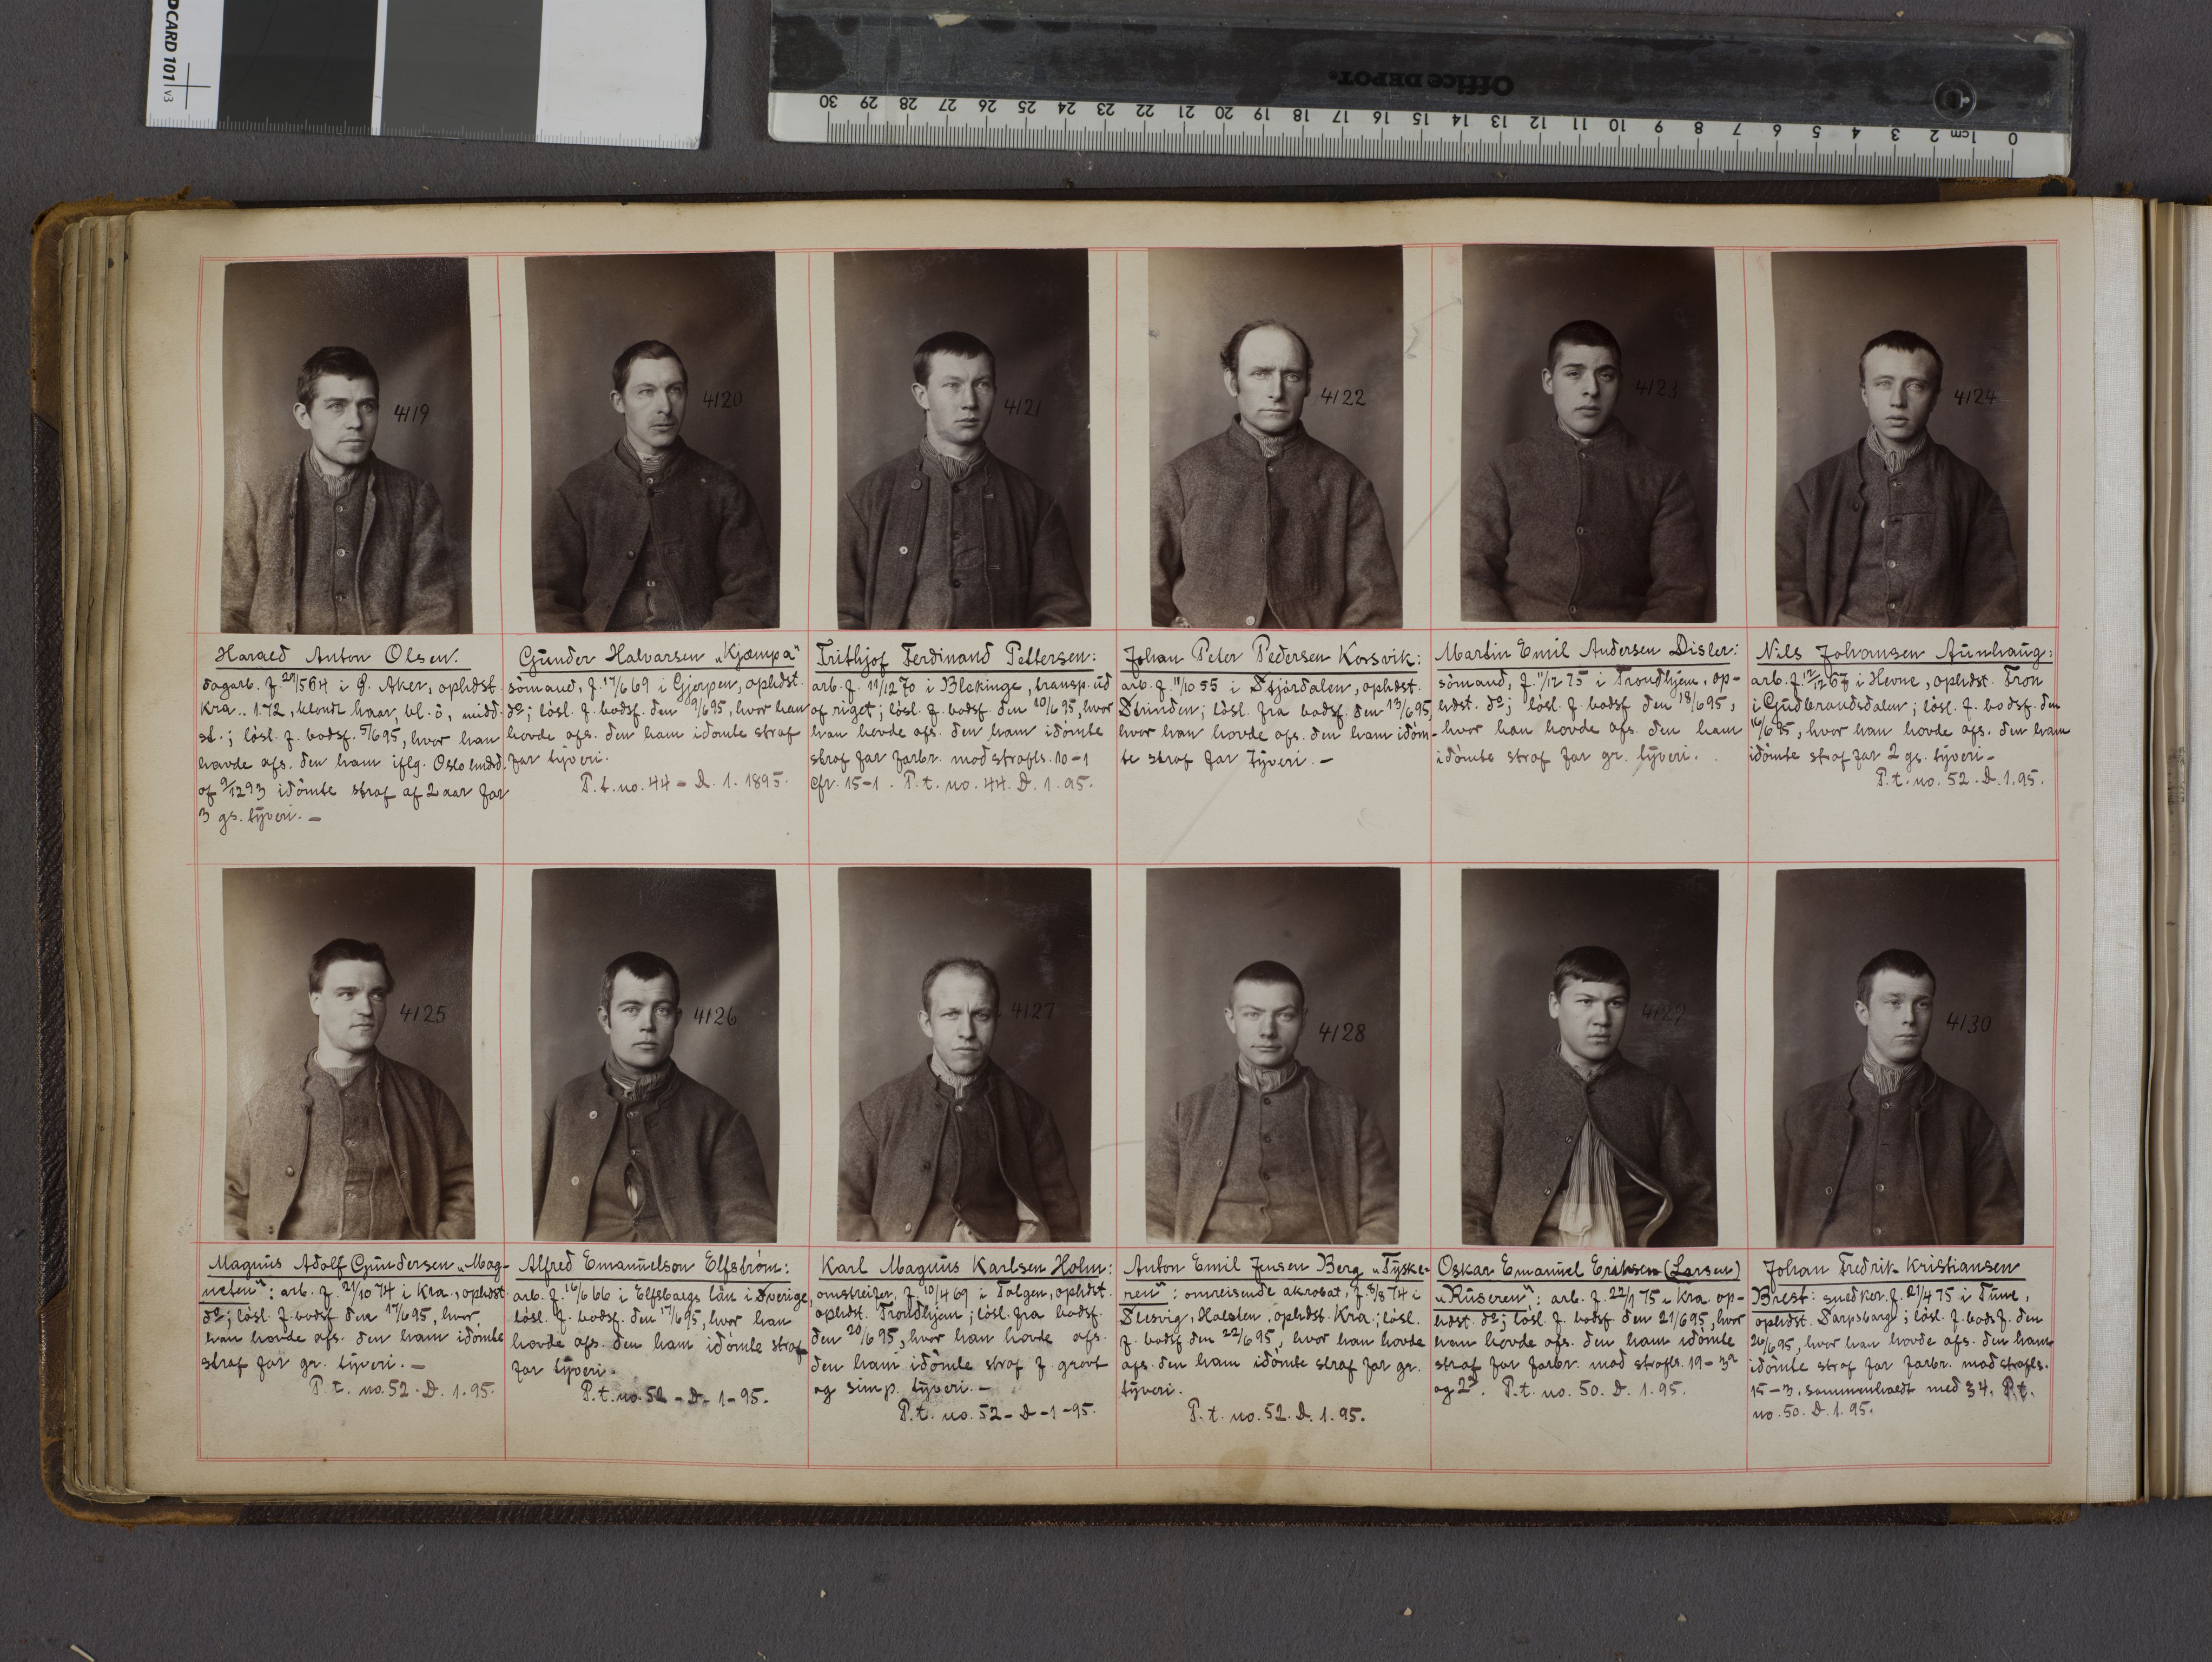 DCARD 101 v3
Office DEPOT.
30 29 28 27 26 25 24 23 22 21 20 19 18 17 16 15 14 13 12 11 10 9 8 7 6 5 4 3 2 1cm 0
4119
4120
4121
4122
4123
4124
Harald Anton Olsen.
dagarb. f. 29/5 64 i Ø. Aker, opholdst.
Kra.. 1.72, blondt haar, bl. ö, midd.
st.; lösl. f. bodsf. 5/6 95, hvor han
havde afs. den ham iflg. Oslo
af 9/12 93 idömte straf af 2 aar for
3 gs. tyveri. –
Gunder Halvorsen „Kjæmpa"
sömand, f. 17/6 69 i Gjerpen, opholdst.
do; lösl. f. bodsf. den 9/6 95, hvor han
havde afs. den ham idömte straf
for tyveri.
P. t. no. 44 – D. 1. 1895.
Frithjof Ferdinand Pettersen:
arb. f. 11/12 70 i Blekinge, transp. ud
af riget; lösl. f. bodsf. den 10/6 95, hvor
han havde afs. den ham idömte
straf for forbr. mod strafls. 10–1
cfr. 15–1. P. t. no. 44. D. 1. 95.
Johan Peter Pedersen Korsvik:
arb. f. 11/10 55 i Stjördalen, opholdst.
Strinden; lösl. fra bodsf. den 13/6 95,
hvor han havde afs. den ham idöm-
te straf for tyveri. –
Martin Emil Andersen Disler:
sömand, f. 11/12 75 i Trondhjem, op-
holdst. do; lösl. f. bodsf den 18/6 95,
hvor han havde afs. den ham
idömte straf for gr. tyveri.
Nils Johansen Aunhaug:
arb. f. 12/12 67 i Hevne, opholdst. Fron
i Gudbrandsdalen; lösl. f. bodsf. den
16/6 95, hvor han havde afs. den ham
idömte straf for 2 gs. tyveri –
P. t. no. 52. D. 1. 95.
4125
4126
4127
4128
4129
4130
Magnus Adolf Gundersen „Mag-
neten": arb. f. 21/10 74 i Kra., opholdst.
do; lösl. f. bodsf den 17/6 95, hvor
han havde afs. den ham idömte
straf for gr. tyveri. –
P. t. no. 52. D. 1. 95.
Alfred Emanuelson Elfström:
arb. f. 16/6 66 i Elfsborgs län i Sverige,
lösl. f. bodsf. den 17/6 95, hvor han
havde afs. den ham idömte straf
for tyveri.
P. t. no. 52 – D. 1 – 95.
Karl Magnus Karlsen Holm:
omstreifer, f. 10/4 69 i Tolgen, opholdst.
opholdst. Trondhjem; lösl. fra bodsf.
den 20/6 95, hvor han havde afs.
den ham idömte straf f. grovt
og simp. tyveri. –
P. t. no. 52 – D – 1 – 95.
Anton Emil Jensen Berg „Tyske-
ren": omreisende akrobat, f. 8/8 74 i
Slesvig, Holsten, opholdst. Kra.; lösl.
f. bodsf den 22/6 95, hvor han havde
afs. den ham idömte straf for gr.
tyveri.
P. t. no. 52. D. 1. 95.
Oskar Emanuel Eriksen (Larsen)
„Ruseren": arb. f. 22/1 75 i Kra. op-
holdst. do; lösl. f. bodsf. den 21/6 95, hvor
han havde afs. den ham idömte
straf for forbr. mod strafls. 19–
og P. t. no. 50. D. 1. 95.
Johan Fredrik Kristiansen
Brest: snedker. f. 21/4 75 i Tune,
opholdst. Sarpsborg; lösl. f. bodsf. den
26/6 95, hvor han havde afs. den ham
idömte straf for forbr. mod strafls.
15–3. sammenholdt med 34. P. t.
no. 50. D. 1. 95.